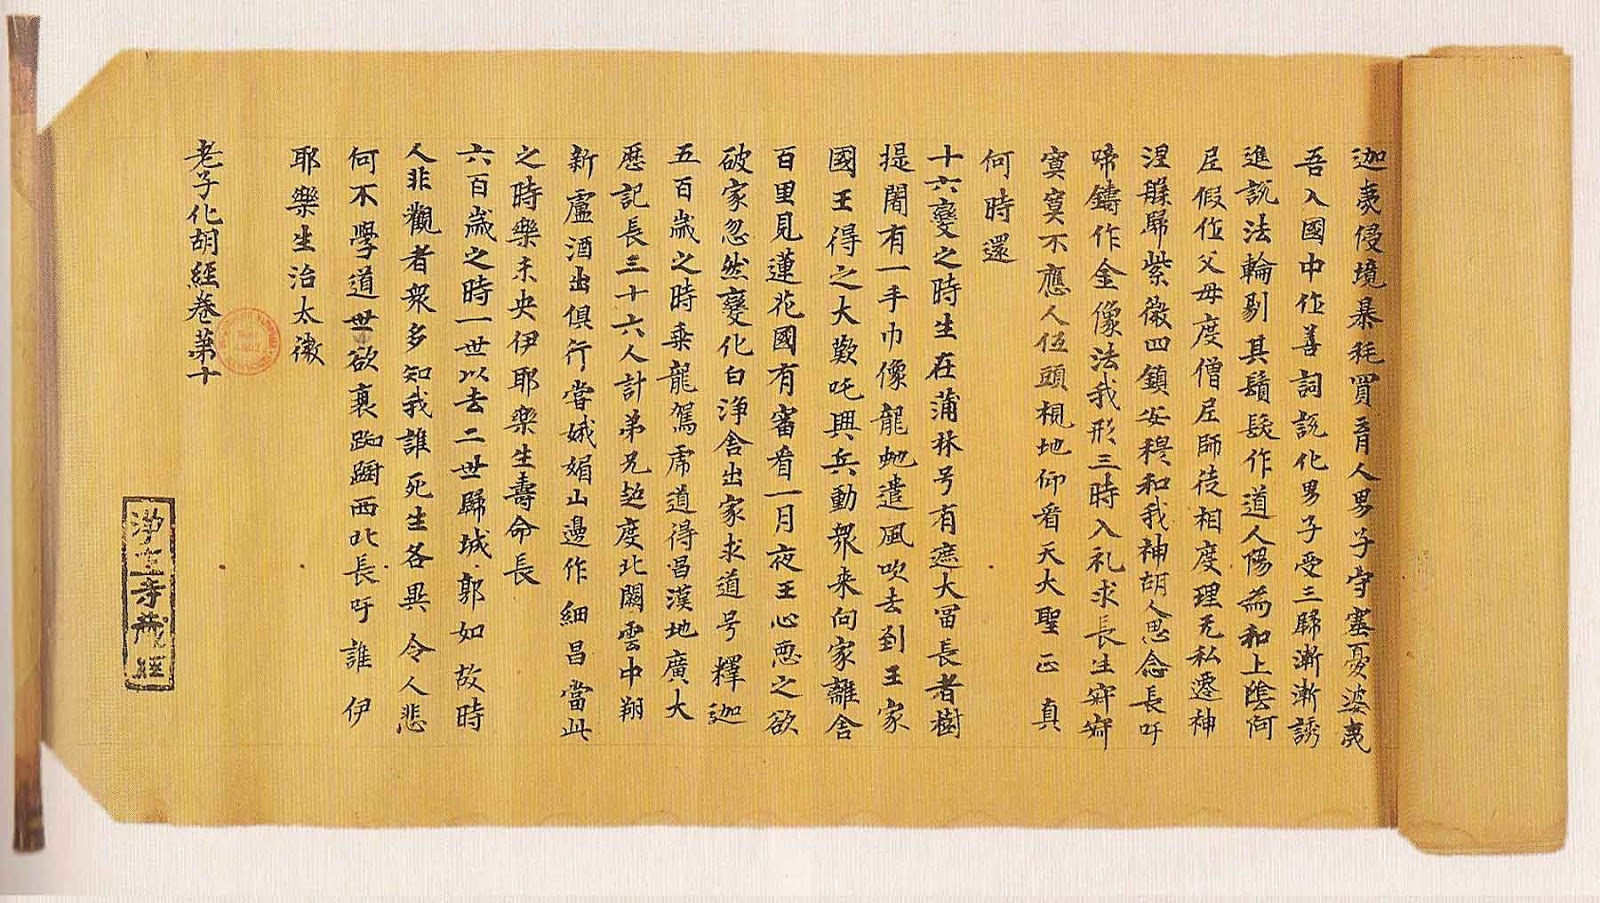 迦夷侵境暴耗買育人男子守塞憂婆夷
吾入國中作善詞說化男子受三歸漸漸誘
進說法輪剔其鬚髮作道人陽為和上陰阿
尼假作父母度僧尼師徒相度理无私遷神
涅槃歸紫微四鎮安穩和我神胡人思念長吁
啼鑄作金像法我形三時入礼求長生寂寂
寞寞不應人伍頭視地仰看天大聖正真
何時還
十六變之時生在蒲林号有遮大富長者樹
提闍有一手巾像龍虵遣風吹去到王家
國王得之大歎吒興兵動衆来向家離舍
百里見蓮花國有審看一月夜王心惡之欲
破家忽然變化白淨舍出家求道号釋迦
五百歲之時乘龍駕席道得昌漢地廣大
歷記長三十六人計弟兄起度北闕雲中翔
新盧酒出俱行當娥媚山邊作細昌當此
之時樂未央伊耶樂生壽命長
六百歲之時一世以去二世歸城郭如故時
人非觀者衆多知我誰死生各異令人悲
何不學道世欲衰踟蹰西北長吁誰伊
耶樂生治太微
老子化胡經卷第十
淨土寺藏經